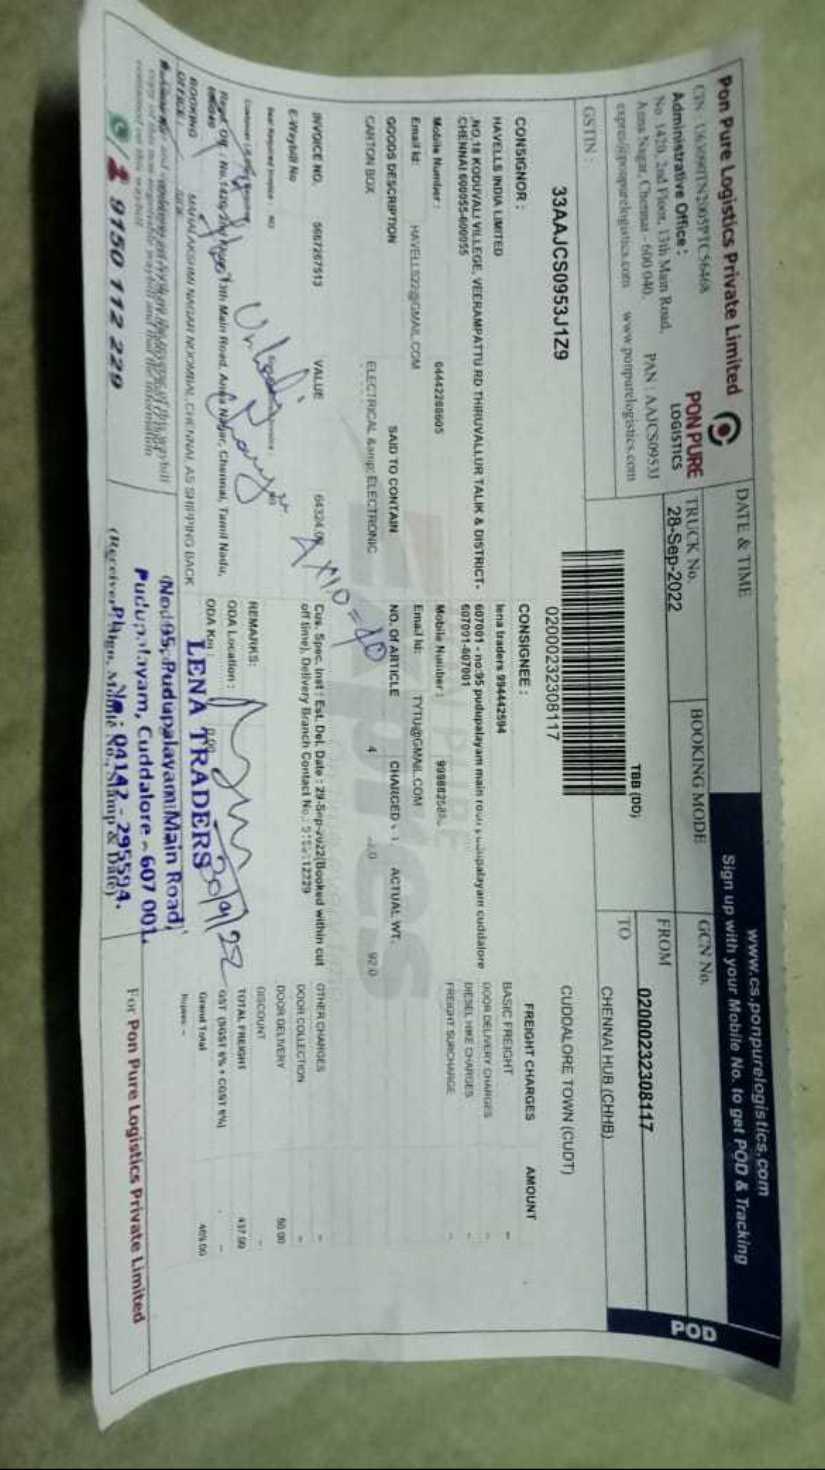 Pon Pure Logistics Private Limited
CIN : U63090TN2005PTC56468
Administrative Office :
No 1420, 2nd Floor, 13th Main Road,
Anna Nagar, Chennai - 600 040.
PAN : AAJCS0953J
www.ponpurelogistics.com
PON PURE
LOGISTICS
GSTIN :
33AAJCS0953J1Z9
DATE & TIME
TRUCK No.
28-Sep-2022
BOOKING MODE
TBB (DD)
02000232308117
www.cs.ponpurelogistics.com
Sign up with your Mobile No. to get POD & Tracking
GCN No.
02000232308117
FROM
CHENNAI HUB (CHHB)
TO
CUDDALORE TOWN (CUDT)
POD
CONSIGNOR :
HAVELLS INDIA LIMITED
NO,18 KODUVALI VILLEGE, VEERAMPATTU RD THIRUVALLUR TALIK & DISTRICT-
CHENNAI 600055-600055
Mobile Number : 04442288605
Email Id: HAVELLS22@GMAIL.COM
CONSIGNEE :
lena traders 994442594
607001 - no:95 pudupalayam main road pudupalayam cuddalore
607001-607001
Mobile Number :
Email Id: TYTU@GMAIL.COM
GOODS DESCRIPTION SAID TO CONTAIN NO. OF ARTICLE CHARGED ACTUAL WT.
CARTON BOX ELECTRICAL &amp; ELECTRONIC 4 92.0
INVOICE NO. 5667267513 VALUE
E-Waybill No
Cus. Spec. Inst : Est. Del. Date : 29-Sep-2022(Booked within cut
off time), Delivery Branch Contact No.:
4x10=40
Unloading
Charge
FREIGHT CHARGES AMOUNT
BASIC FREIGHT -
DOOR DELIVERY CHARGES -
DIESEL HIKE CHARGES -
FREIGHT SURCHARGE -
OTHER CHARGES -
DOOR COLLECTION -
DOOR DELIVERY 50.00
DISCOUNT -
TOTAL FREIGHT 437.00
GST (SGST 6% + CGST 6%) -
Grand Total 489.00
Rupees: -
REMARKS:
ODA Location :
ODA Km : 0.00
Regd. Off : No.1420, 2nd Floor, 13th Main Road, Anna Nagar, Chennai, Tamil Nadu,
BOOKING OFFICE : MAHALAKSHMI NAGAR NOOMBAL CHENNAI, AS SHIPPING BACK
9150 112 229
30/9/22
LENA TRADERS
No: 95, Pudupalayam Main Road,
Pudupalayam, Cuddalore - 607 001.
Ph No: 04142 - 295594.
For Pon Pure Logistics Private Limited